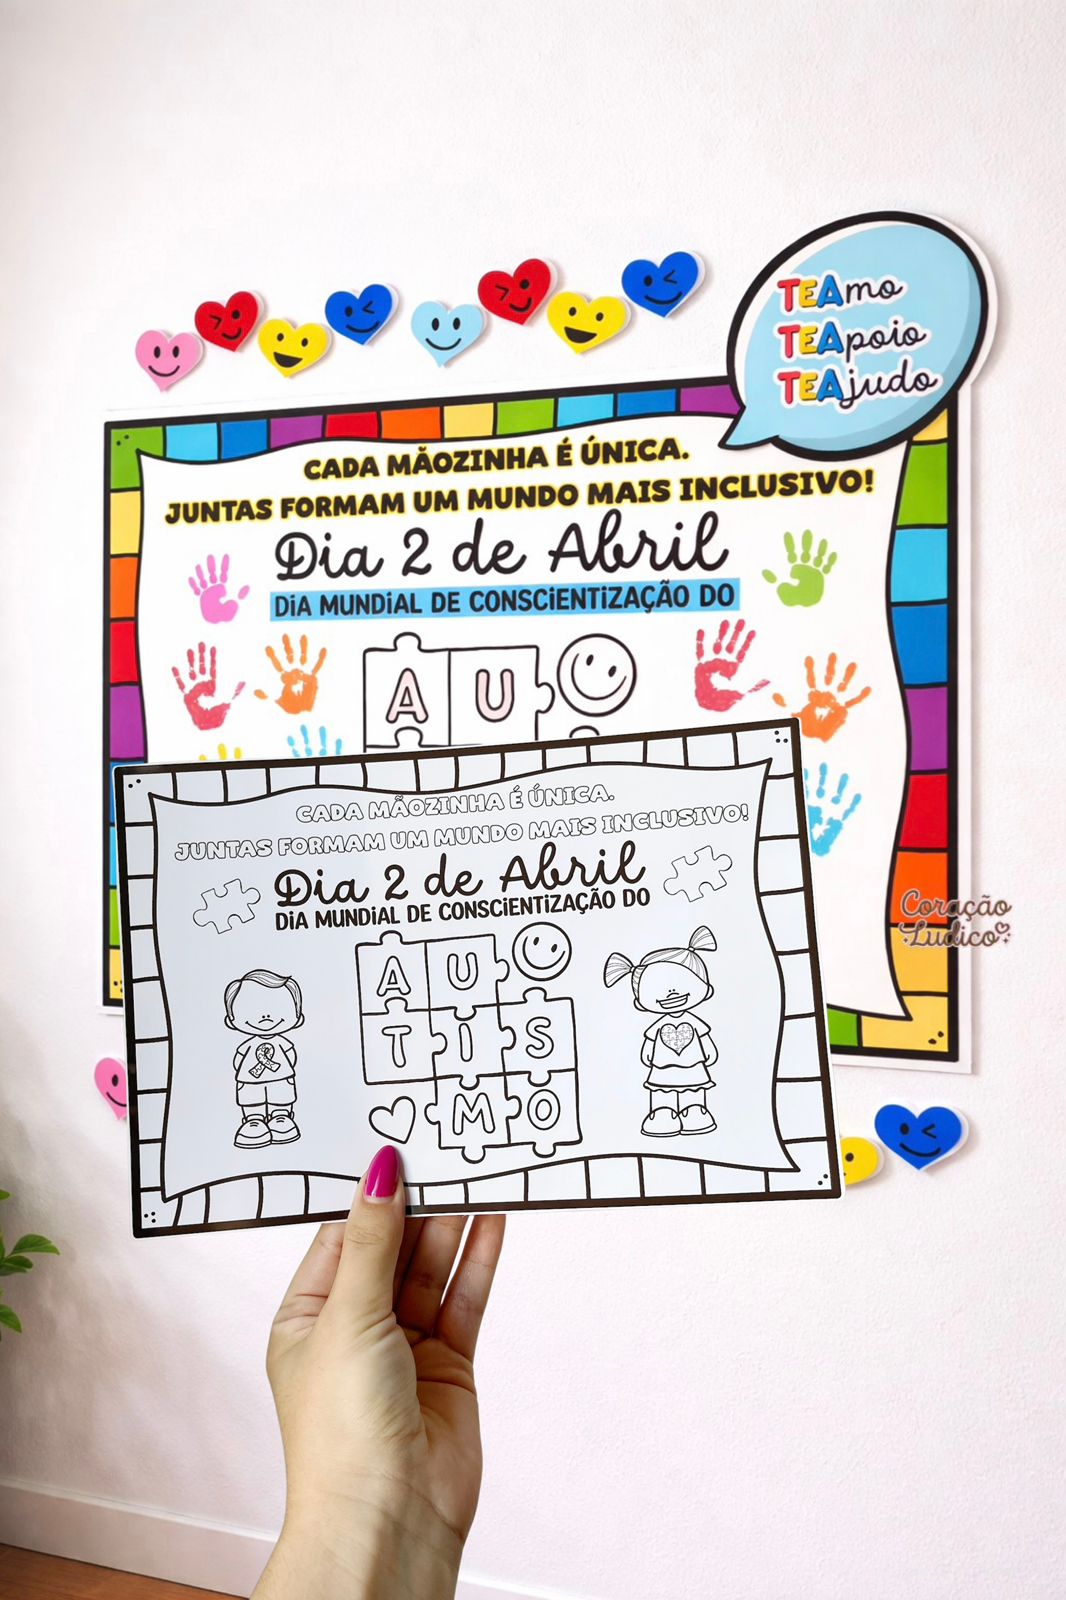 TEAmo
TEApoio
TEAjudo
CADA MÃOZINHA É ÚNICA.
JUNTAS FORMAM UM MUNDO MAIS INCLUSIVO!
Dia 2 de Abril
DIA MUNDIAL DE CONSCIENTIZAÇÃO DO
AU
CADA MÃOZINHA É ÚNICA.
JUNTAS FORMAM UM MUNDO MAIS INCLUSIVO!
Dia 2 de Abril
DIA MUNDIAL DE CONSCIENTIZAÇÃO DO
AU
TIS
MO
Coração
Lúdico